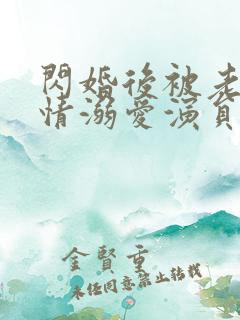 閃婚後被老
情溺愛演員
金賢重
未經同意禁止轉載